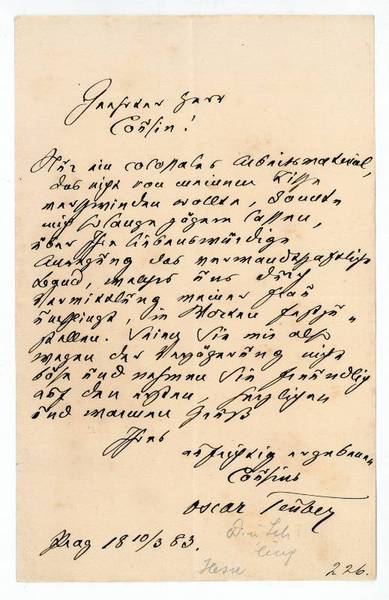 Geehrter Herr
Cousin!
Nur ein colossales Arbeitsmaterial,
das nicht von meinem Tische
verschwinden wollte, konnte
mich so lange zögern lassen,
über Ihre liebenswürdige
Anregung das verwandtschaftliche
Band, welches uns durch
Vermittlung meiner Frau
umschlingt, in Worten festzu-
stellen. Seien Sie mir also
wegen der Verzögerung nicht
böse und nehmen Sie freundlich
auf den ersten, herzlichen
und warmen Gruß
Ihres
aufrichtig ergebenen
Cousins
Oscar Teuber
Prag 18 10/3 83.
226.